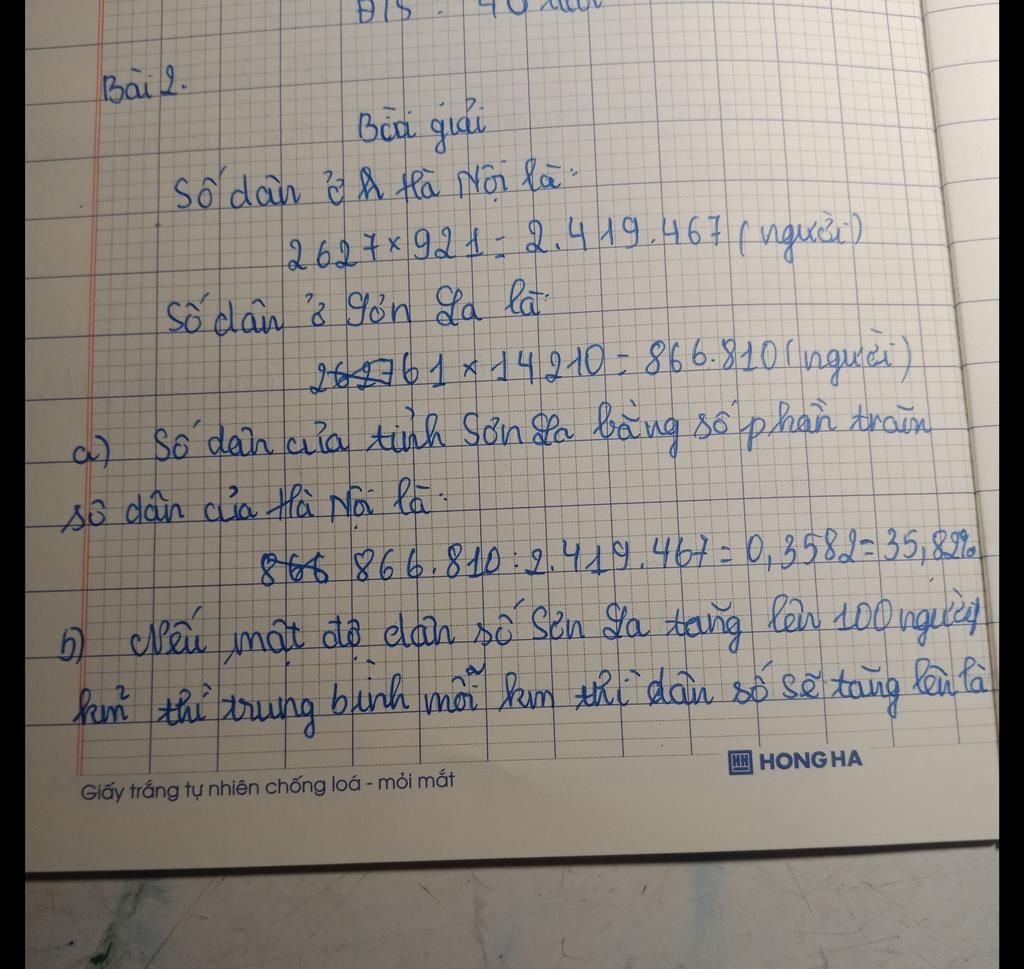 Đ/S : 40
Bài 2.
Bài giải
Số dân ở Hà Nội là:
2627 × 921 = 2.419.467 (người)
Số dân ở Sơn La là:
61 × 14210 = 866.810 (người)
a) Số dân của tỉnh Sơn La bằng số phần trăm
số dân của Hà Nội là:
866 866.810 : 2.419.467 = 0,3582 = 35,82%
b) Nếu mật độ dân số Sơn La tăng lên 100 người/
km² thì trung bình mỗi km² thì dân số sẽ tăng lên là
HH HONG HA
Giấy trắng tự nhiên chống loá - mỏi mắt